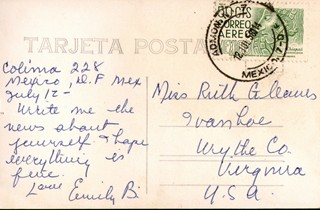 TARJETA POSTAL
CTS
CORREO
AEREO
MEXICO, D.
Colima 228
Mexico, D.F Mex
July 12-
Write me the
news about
yourself. I hope
everything is
fine.
Love
Emily B.
Miss Ruth Gleaves
Ivanhoe
Wythe Co.
Virginia
U.S.A.